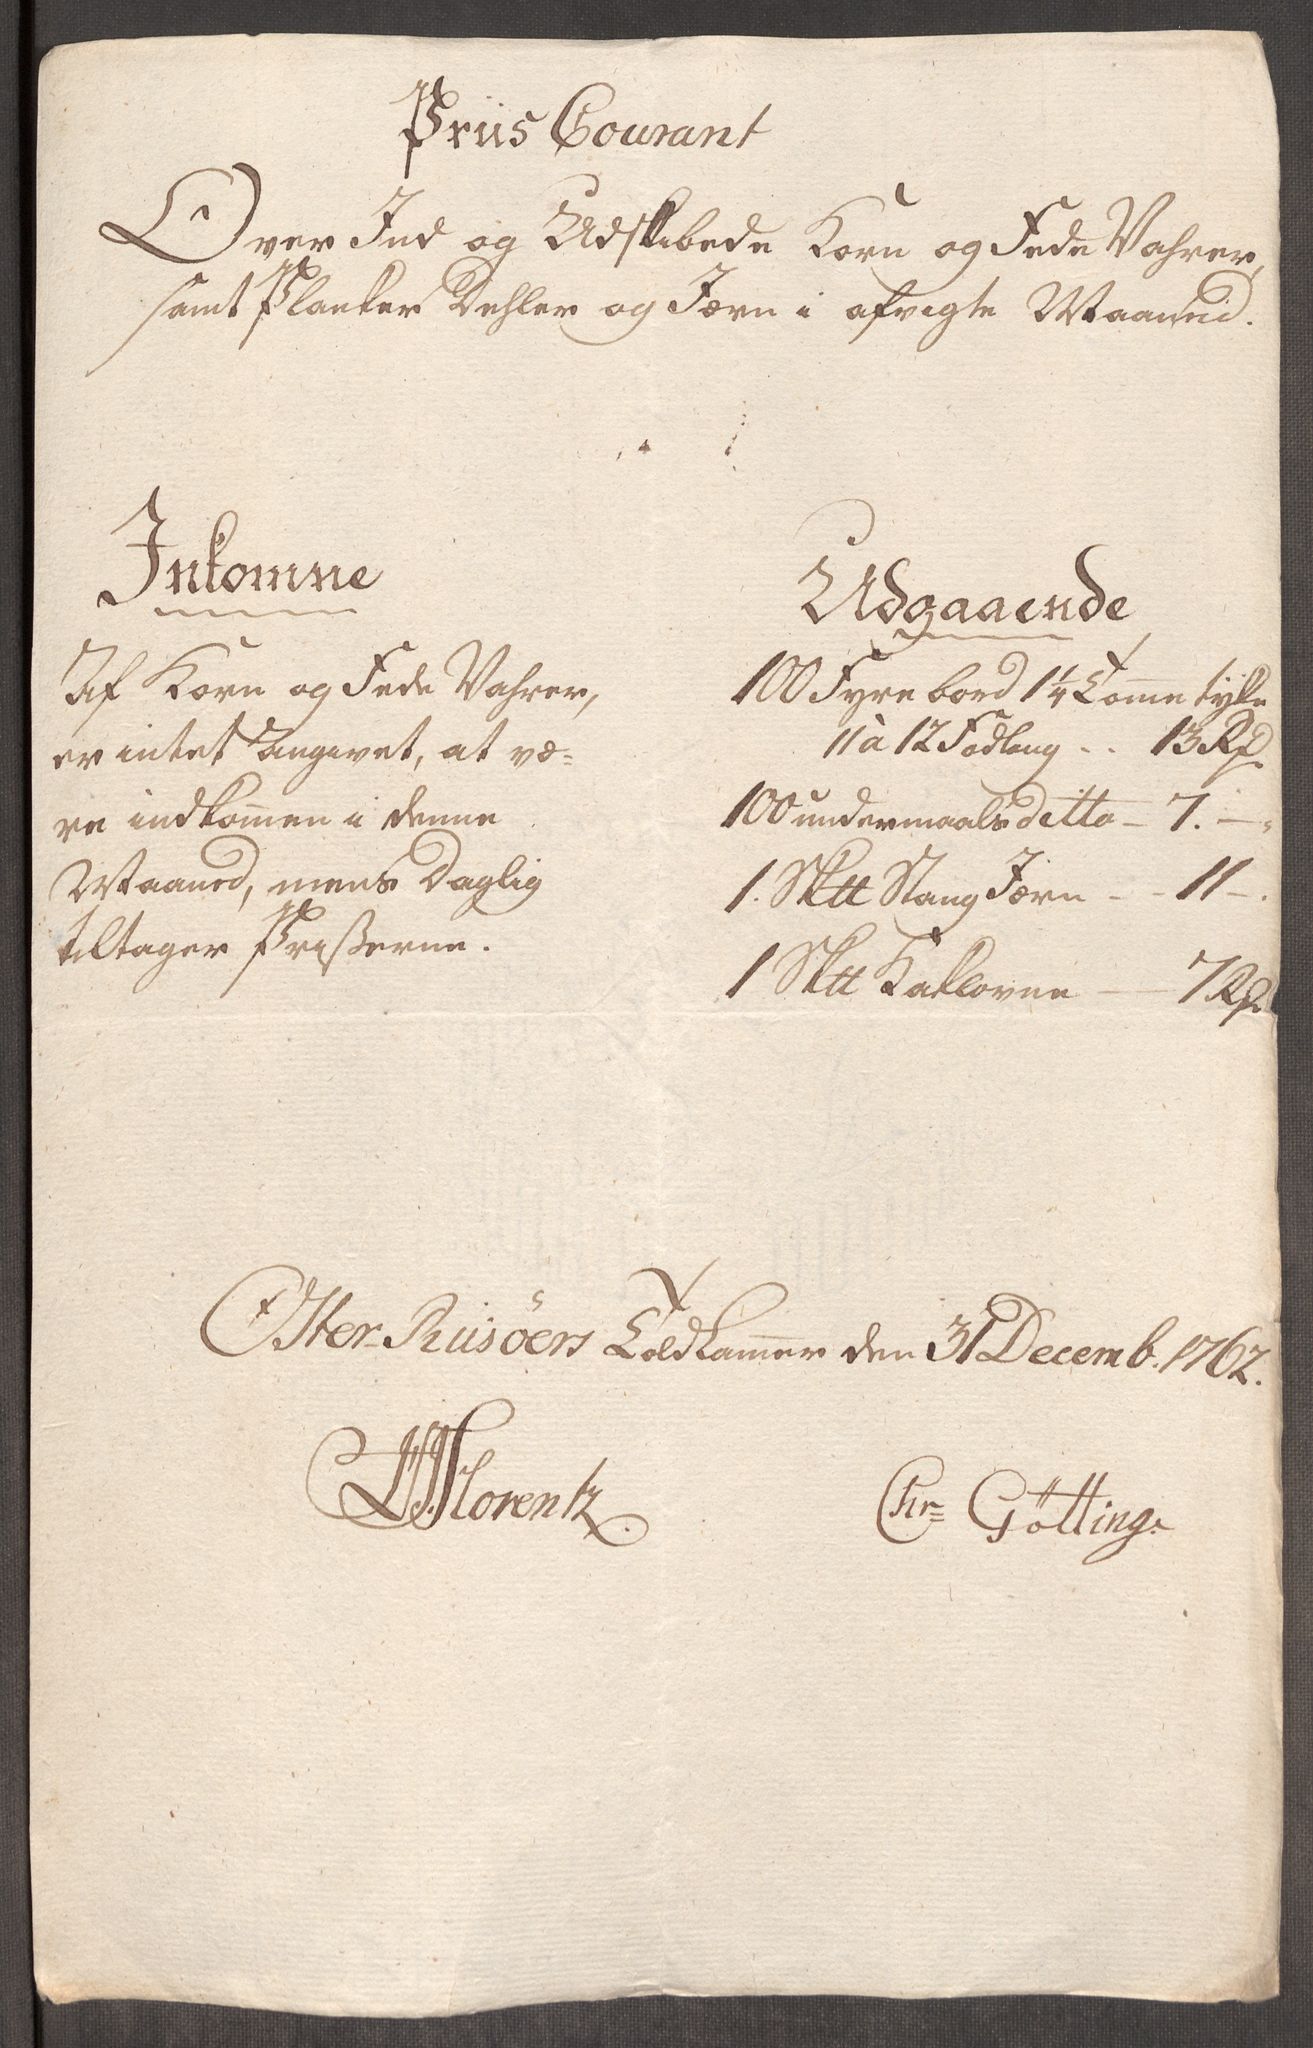 Priis Courant
Over Ind og Udskibede Korn og Fede Vahrer,
samt Planker Dehler og Jern i afvigte Maaned.
Inkomne
Af Korn og Fede Vahrer,
er intet angivet, at væ-
re indkommen i denne
Maaned, mens Daglig
tiltager Prißerne.
Udgaaende
100 Fyrebord 1 1/4 Tomme tyke
11 à 12 Fodlang - - 13 Rd
100 undermaals ditto - 7. -
1. Sktt Stang Jern - - 11 -.
1 Sktt Kaklovne - 7 Rd.
Oster-Riisöers Toldkammer den 31 Decemb. 1762.
Florentz.
Chr= Götting.